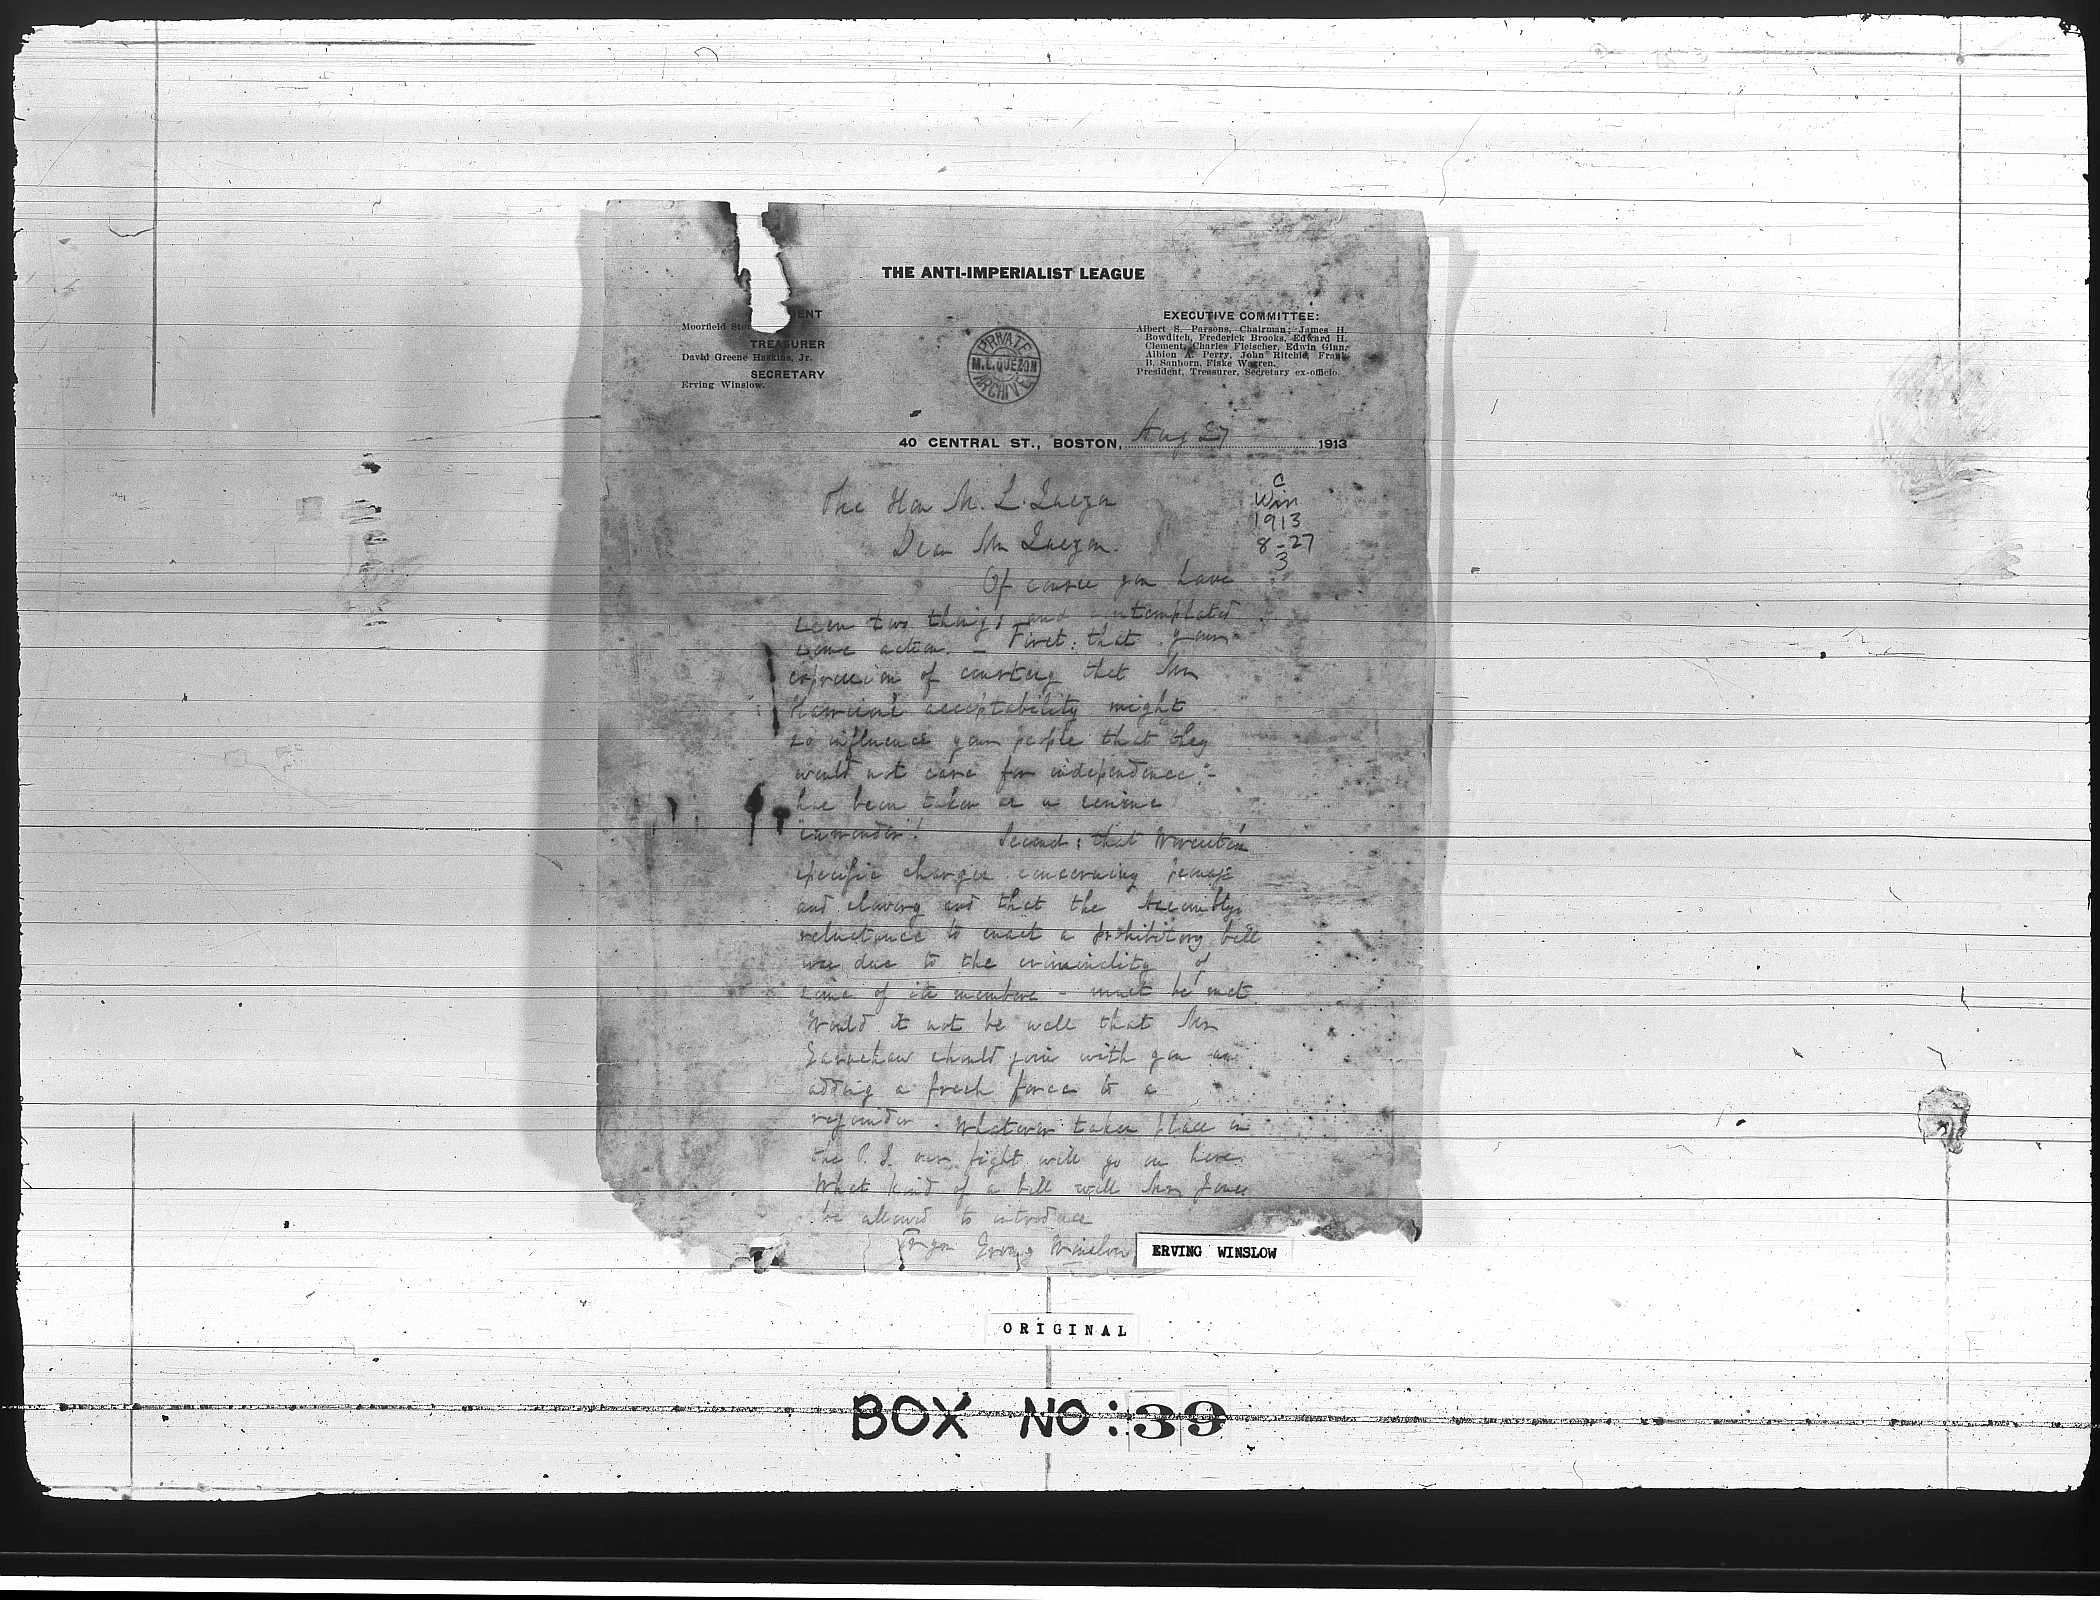 THE ANTI-IMPERIALIST LEAGUE
ENT
Moorfield Sto
TREASURER
David Greene Haskins, Jr.
SECRETARY
Erving Winslow.
PRIVATE
M.L. QUEZON
ARCHIVE
EXECUTIVE COMMITTEE:
Albert S. Parsons, Chairman; James H.
Bowditch, Frederick Brooks, Edward H.
Clement, Charles Fleischer, Edwin Ginn,
Albion A. Perry, John Ritchie, Frank
B. Sanborn, Fiske Warren,
President, Treasurer, Secretary ex-officio.
40 CENTRAL ST., BOSTON, Aug 27 1913
C
Win
1913
8-27
3
The Hon M. L. Quezon
Dear Mr Quezon.
Of course you have
seen two things and contemplated
some action. – First: that your
expression of courtesy that Mr
Harrison's acceptability might
so influence your people that they
would not care for independence:-
has been taken as a
"surrender"! Second: that Worcester's
specific charges concerning peonage
and slavery and that the Assembly's
reluctance to enact a prohibitory bill
was due to the criminality of
some of its members - must be met.
Would it not be well that Mr
Earnshaw should join with you
adding a fresh force to a
rejoinder. Whatever takes place in
the P. I. our fight will go on here.
What kind of a bill will Mr Jones
be allowed to introduce
Erving Winslow
ERVING WINSLOW
ORIGINAL
BOX NO: 39